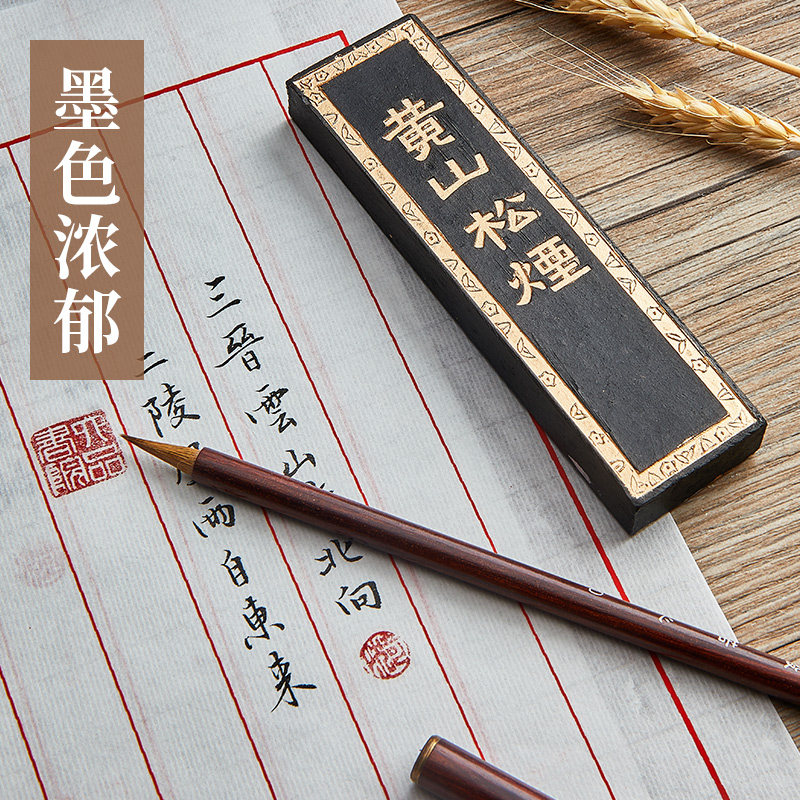 墨色浓郁
黄山松煙
三晉雲山北向
二陵雨自東來